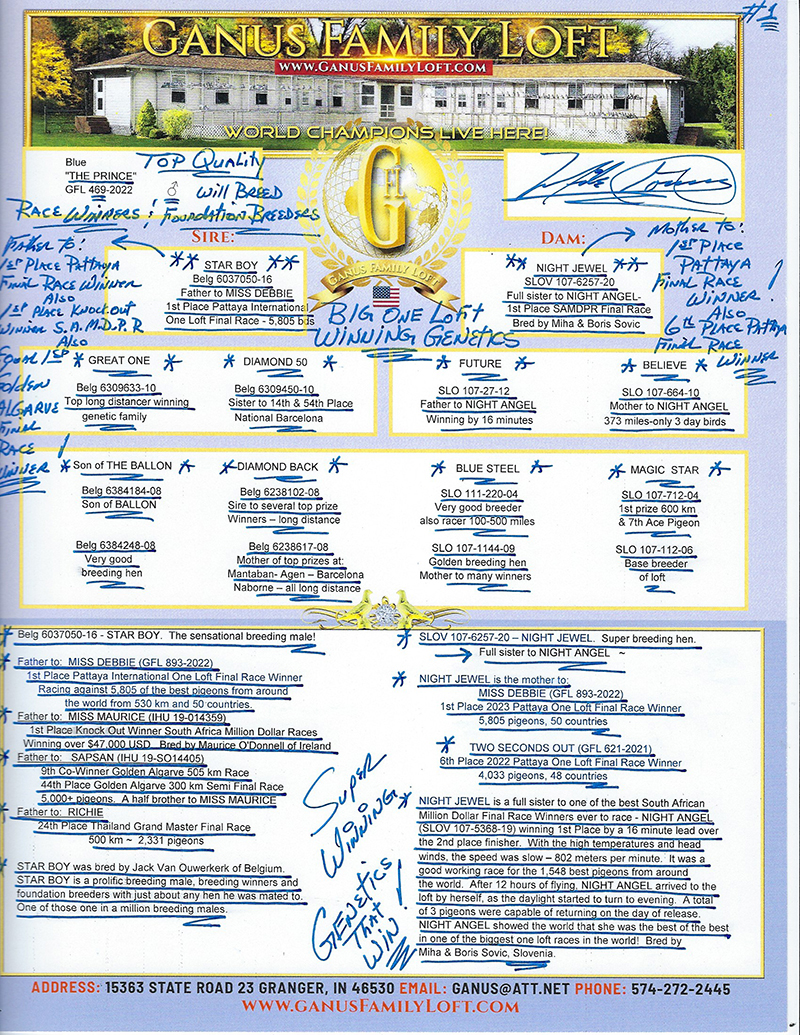 #1
GANUS FAMILY LOFT
WWW.GANUSFAMILYLOFT.COM
WORLD CHAMPIONS LIVE HERE!
Blue
"THE PRINCE"
GFL 469-2022 ♂
TOP QUALITY
WILL BREED
RACE WINNERS & FOUNDATION BREEDERS
GFL
GANUS FAMILY LOFT
SIRE:
** STAR BOY **
Belg 6037050-16
Father to MISS DEBBIE
1st Place Pattaya International
One Loft Final Race - 5,805 bds
FATHER TO:
1ST PLACE PATTAYA
FINAL RACE WINNER
ALSO
1ST PLACE KNOCK OUT
WINNER S.A.M.D.P.R
ALSO
EQUAL 1ST
GOLDEN
ALGARVE
FINAL
RACE
WINNER!
DAM:
** NIGHT JEWEL **
SLOV 107-6257-20
Full sister to NIGHT ANGEL-
1st Place SAMDPR Final Race
Bred by Miha & Boris Sovic
MOTHER TO:
1ST PLACE
PATTAYA
FINAL RACE
WINNER!
ALSO
6TH PLACE PATTAYA
FINAL RACE
WINNER
BIG ONE LOFT
WINNING GENETICS
* GREAT ONE *
Belg 6309633-10
Top long distancer winning
genetic family
* DIAMOND 50 *
Belg 6309450-10
Sister to 14th & 54th Place
National Barcelona
* FUTURE *
SLO 107-27-12
Father to NIGHT ANGEL
Winning by 16 minutes
* BELIEVE *
SLO 107-664-10
Mother to NIGHT ANGEL
373 miles-only 3 day birds
* Son of THE BALLON *
Belg 6384184-08
Son of BALLON
Belg 6384248-08
Very good
breeding hen
* DIAMOND BACK *
Belg 6238102-08
Sire to several top prize
Winners – long distance
Belg 6238617-08
Mother of top prizes at:
Mantaban- Agen – Barcelona
Naborne – all long distance
* BLUE STEEL *
SLO 111-220-04
Very good breeder
also racer 100-500 miles
SLO 107-1144-09
Golden breeding hen
Mother to many winners
* MAGIC STAR *
SLO 107-712-04
1st prize 600 km
& 7th Ace Pigeon
SLO 107-112-06
Base breeder
of loft
* Belg 6037050-16 - STAR BOY. The sensational breeding male!
* Father to: MISS DEBBIE (GFL 893-2022)
1st Place Pattaya International One Loft Final Race Winner
Racing against 5,805 of the best pigeons from around
the world from 530 km and 50 countries.
* Father to: MISS MAURICE (IHU 19-014359)
1st Place Knock Out Winner South Africa Million Dollar Races
Winning over $47,000 USD. Bred by Maurice O'Donnell of Ireland
* Father to: SAPSAN (IHU 19-SO14405)
9th Co-Winner Golden Algarve 505 km Race
44th Place Golden Algarve 300 km Semi Final Race
5,000+ pigeons. A half brother to MISS MAURICE
* Father to: RICHIE
24th Place Thailand Grand Master Final Race
500 km ~ 2,331 pigeons
* STAR BOY was bred by Jack Van Ouwerkerk of Belgium.
STAR BOY is a prolific breeding male, breeding winners and
foundation breeders with just about any hen he was mated to.
One of those one in a million breeding males.
SUPER
WINNING
GENETICS
THAT
WIN!
* SLOV 107-6257-20 – NIGHT JEWEL. Super breeding hen.
Full sister to NIGHT ANGEL ~
* NIGHT JEWEL is the mother to:
MISS DEBBIE (GFL 893-2022)
1st Place 2023 Pattaya One Loft Final Race Winner
5,805 pigeons, 50 countries
* TWO SECONDS OUT (GFL 621-2021)
6th Place 2022 Pattaya One Loft Final Race Winner
4,033 pigeons, 48 countries
* NIGHT JEWEL is a full sister to one of the best South African
Million Dollar Final Race Winners ever to race - NIGHT ANGEL
(SLOV 107-5368-19) winning 1st Place by a 16 minute lead over
the 2nd place finisher. With the high temperatures and head
winds, the speed was slow – 802 meters per minute. It was a
good working race for the 1,548 best pigeons from around
the world. After 12 hours of flying, NIGHT ANGEL arrived to the
loft by herself, as the daylight started to turn to evening. A total
of 3 pigeons were capable of returning on the day of release.
NIGHT ANGEL showed the world that she was the best of the best
in one of the biggest one loft races in the world! Bred by
Miha & Boris Sovic, Slovenia.
ADDRESS: 15363 STATE ROAD 23 GRANGER, IN 46530 EMAIL: GANUS@ATT.NET PHONE: 574-272-2445
WWW.GANUSFAMILYLOFT.COM